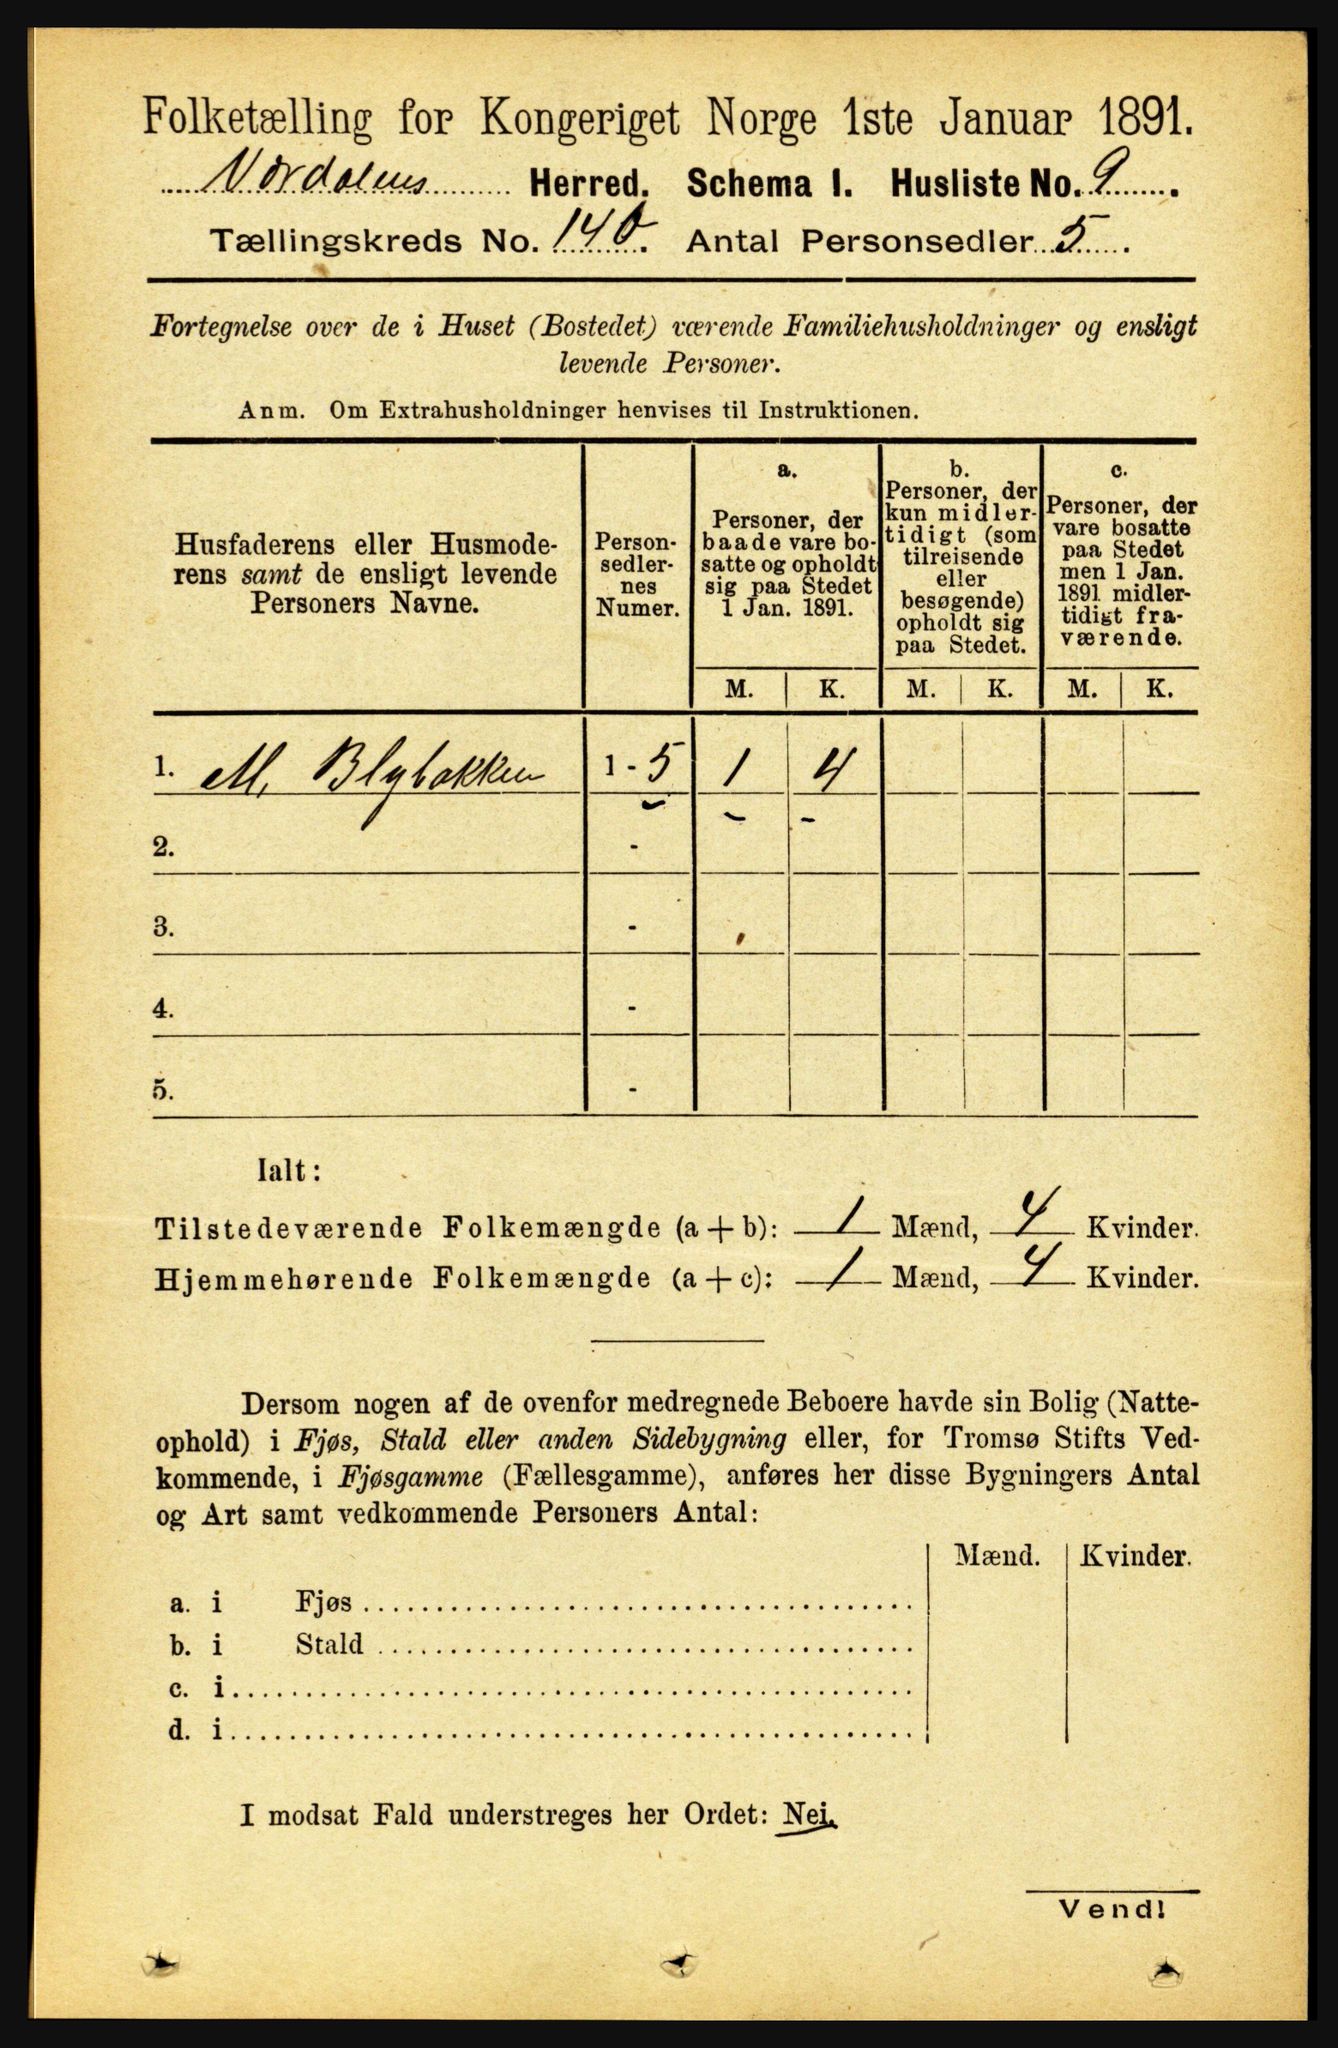 Folketælling for Kongeriget Norge 1ste Januar 1891.
Værdalens Herred. Schema I. Husliste No. 9.
Tællingskreds No. 14 b. Antal Personsedler 5.
Fortegnelse over de i Huset (Bostedet) værende Familiehusholdninger og ensligt
levende Personer.
Anm. Om Extrahusholdninger henvises til Instruktionen.
Husfaderens eller Husmode-
rens samt de ensligt levende
Personers Navne.
Person-
sedler-
nes
Numer.
a.
Personer, der
baade vare bo-
satte og opholdt
sig paa Stedet
1 Jan. 1891.
b.
Personer, der
kun midler-
tidigt (som
tilreisende
eller
besøgende)
opholdt sig
paa Stedet.
c.
Personer, der
vare bosatte
paa Stedet
men 1 Jan.
1891 midler-
tidigt fra-
værende.
M. K. M. K. M. K.
1. M. Blybakken 1 - 5 1 4
2. -
3. -
4. -
5. -
Ialt:
Tilstedeværende Folkemængde (a + b): 1 Mænd, 4 Kvinder.
Hjemmehørende Folkemængde (a + c): 1 Mænd, 4 Kvinder.
Dersom nogen af de ovenfor medregnede Beboere havde sin Bolig (Natte-
ophold) i Fjøs, Stald eller anden Sidebygning eller, for Tromsø Stifts Ved-
kommende, i Fjøsgamme (Fællesgamme), anføres her disse Bygningers Antal
og Art samt vedkommende Personers Antal:
Mænd. Kvinder.
a. i Fjøs
b. i Stald
c. i
d. i
I modsat Fald understreges her Ordet: Nei.
Vend!